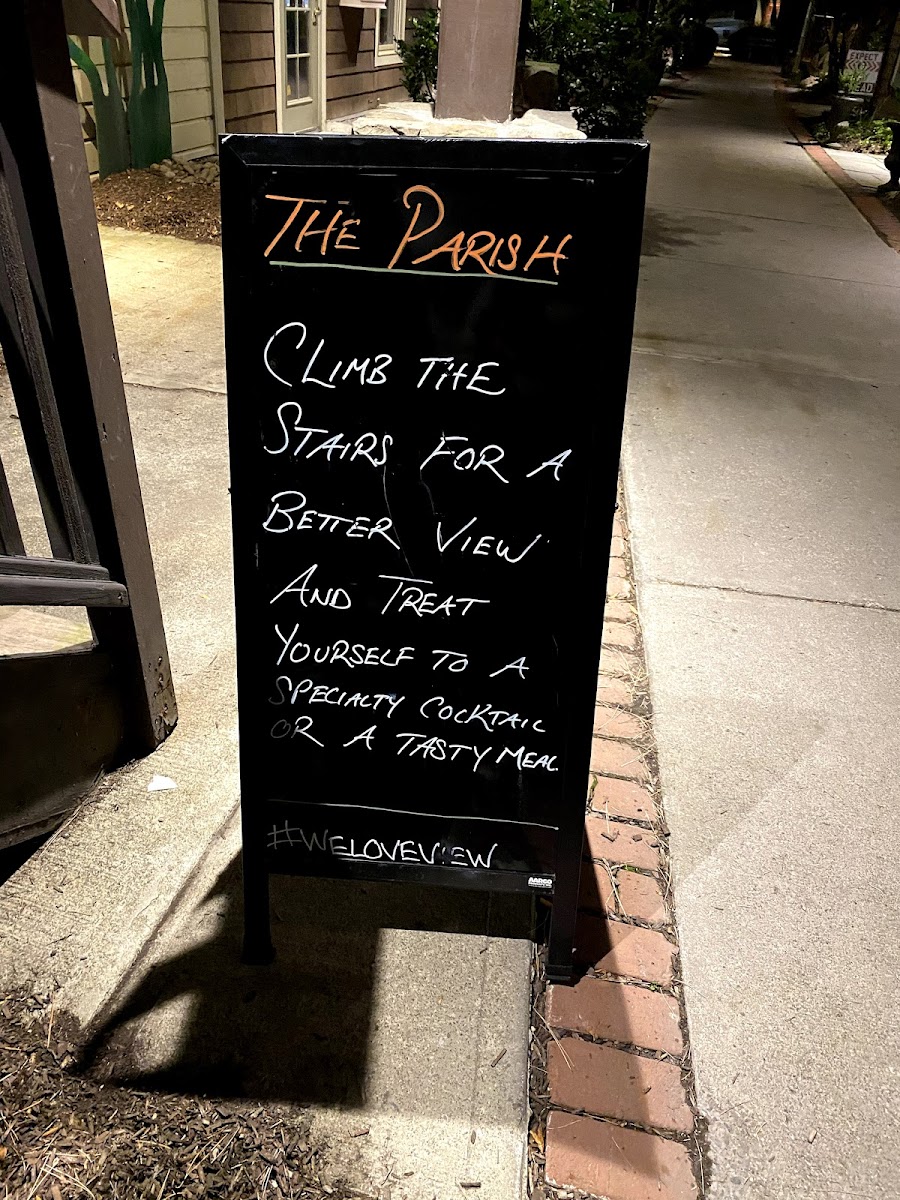 THE PARISH
CLIMB THE
STAIRS FOR A
BETTER VIEW
AND TREAT
YOURSELF TO A
SPECIALTY COCKTAIL
OR A TASTY MEAL
#WELOVEVIEW
AARCO
EXPECT